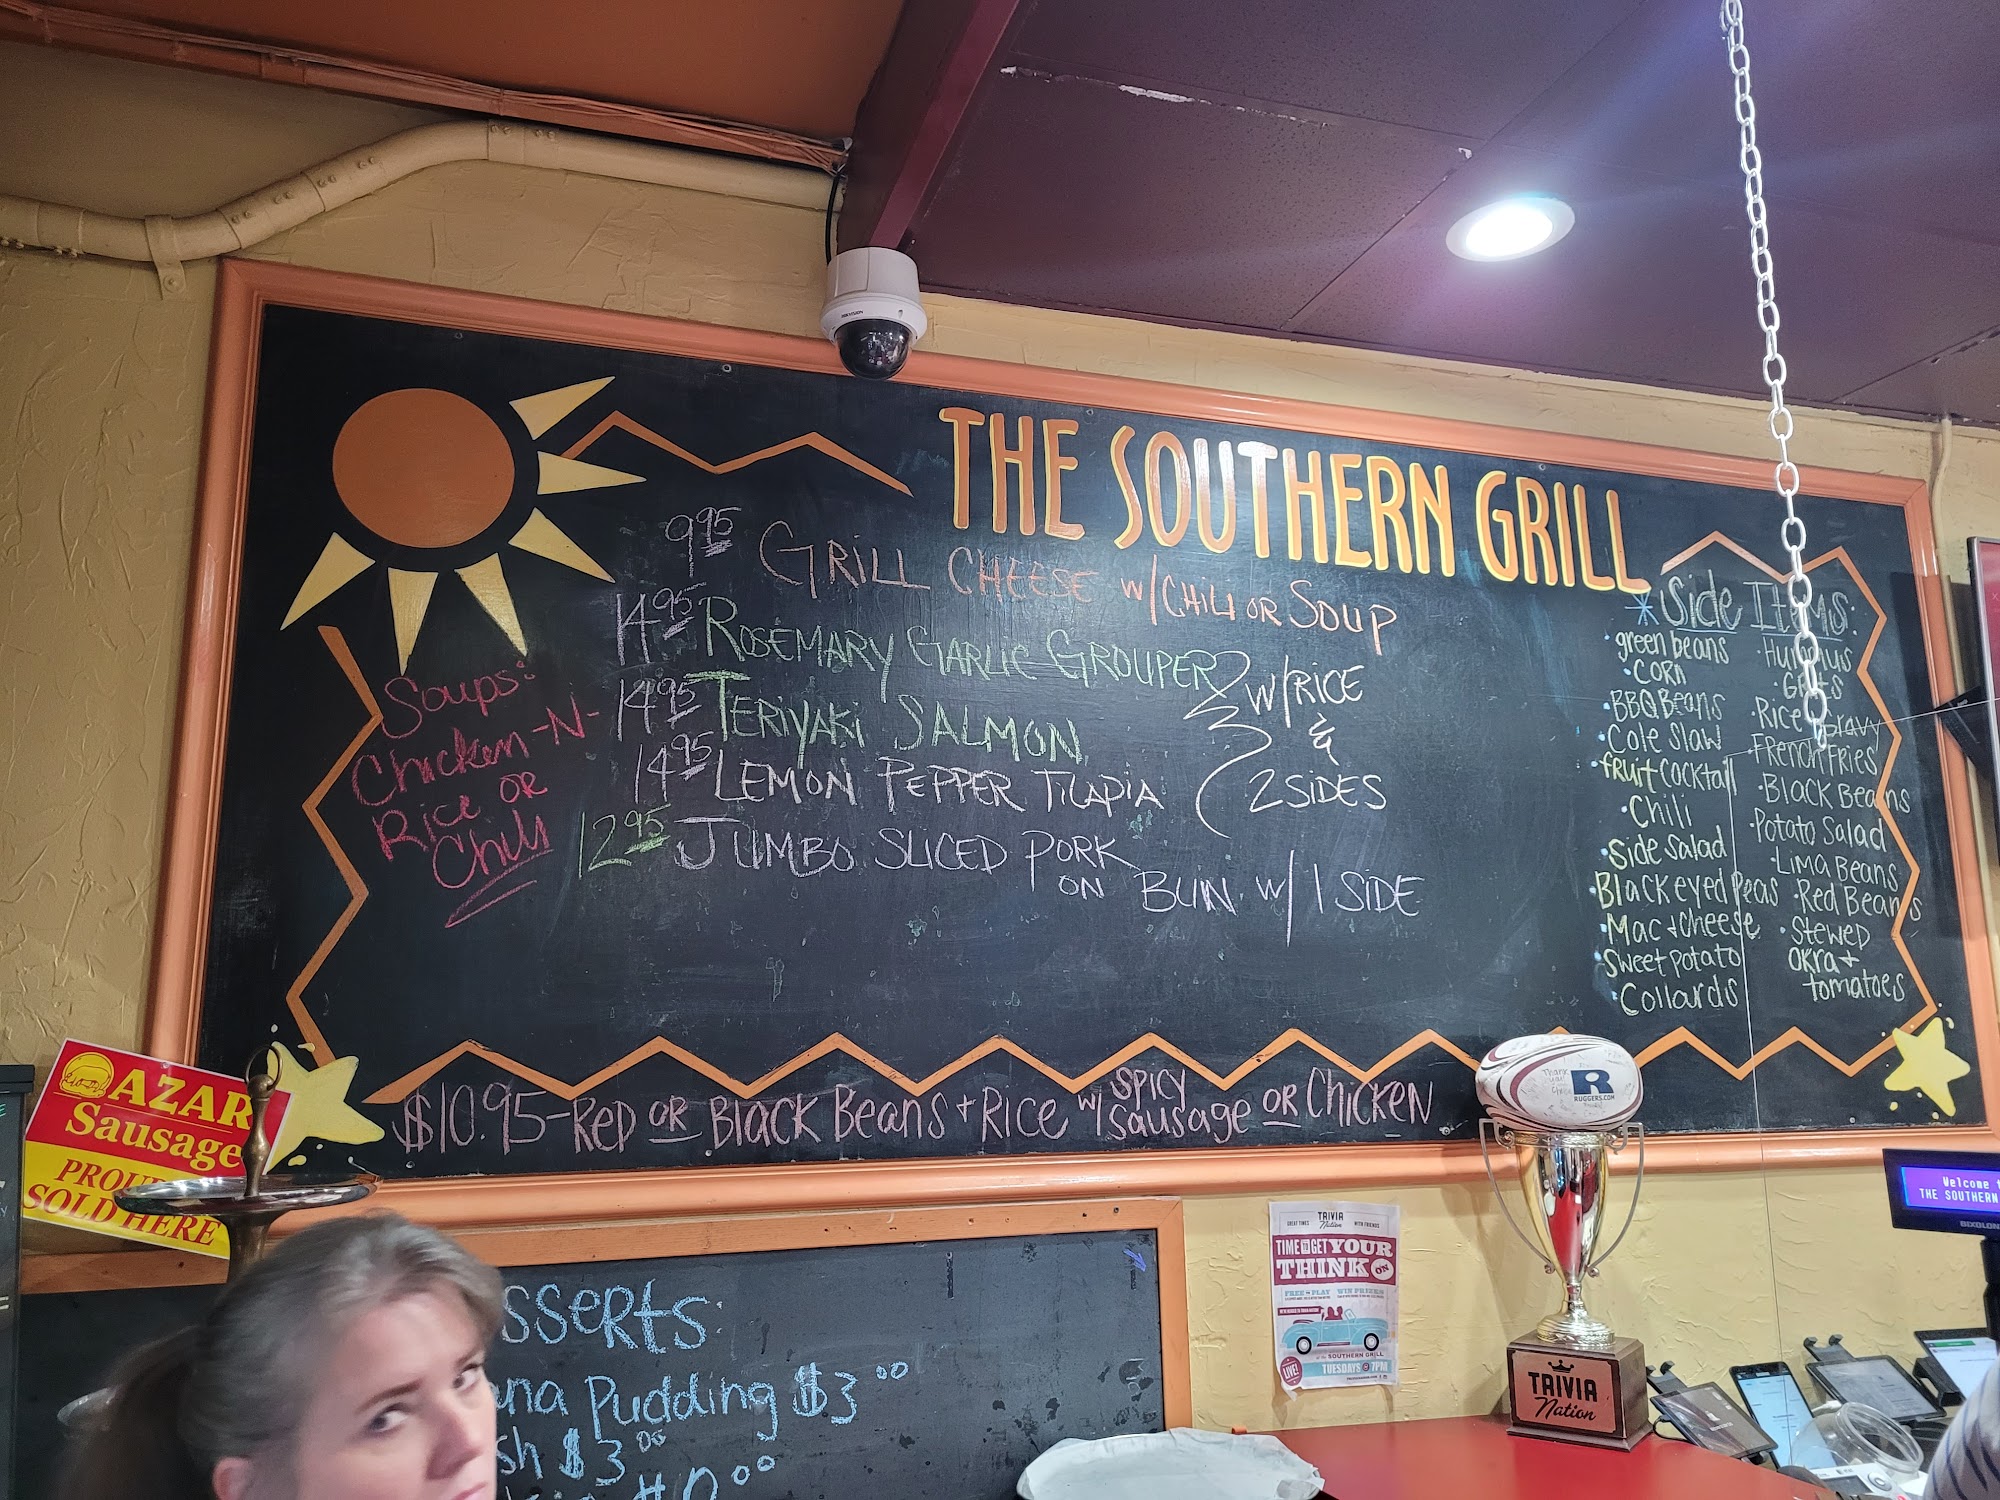 HIKVISION
THE SOUTHERN GRILL
9.95 GRILL CHEESE W/CHILI OR SOUP
14.95 ROSEMARY GARLIC GROUPER
14.95 TERIYAKI SALMON
14.95 LEMON PEPPER TILAPIA
W/RICE
&
2 SIDES
12.95 JUMBO SLICED PORK
ON BUN W/ 1 SIDE
Soups:
Chicken-N-
Rice OR
Chili
* Side Items:
• green beans
• Corn
• BBQ Beans
• Cole Slaw
• fruit cocktail
• Chili
• Side Salad
• Blackeyed Peas
• Mac + Cheese
• Sweet Potato
• Collards
• Hummus
• Grits
• Rice + Gravy
• French Fries
• Black Beans
• Potato Salad
• Lima Beans
• Red Beans
• Stewed
Okra +
tomatoes
$10.95 - Red OR Black Beans + Rice w/ SPICY Sausage OR Chicken
AZAR
Sausage
SOLD HERE
sserts:
ana Pudding $3.00
sh $3.00
TRIVIA
Nation
GREAT TIMES
WITH FRIENDS
TIME TO GET YOUR
THINK ON
FREE TO PLAY
WIN PRIZES
SOUTHERN GRILL
LIVE!
TUESDAYS @ 7PM
Thank
you!
R
RUGGERS.COM
TRIVIA
Nation
Welcome t
THE SOUTHERN
BIXOLON